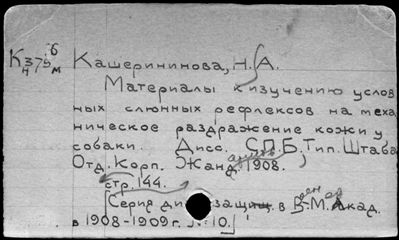 К375 б
н м
Кашерининова, Н. А.
Материалы к изучению услов
ных слюнных рефлексов на меха
ническое раздражение кожи у
собаки. Дисс. С.П.Б. Тип. Штаба
Отд. Корп. Жанд. 1908.
стр. 144.
[Серия дис. защищ. в В.-М. Акад.
в 1908-1909 г. №: 10.]